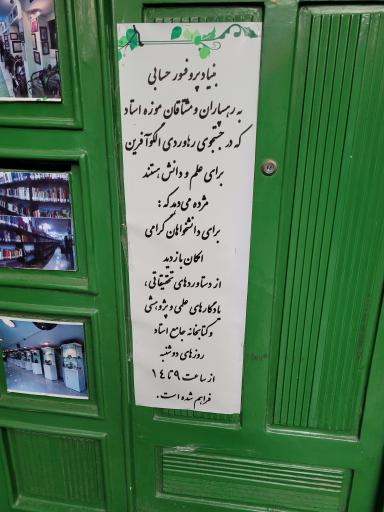 بنیاد پروفسور حسابی
به رهسپاران و مشتاقان موزه استاد
که در جستجوی رهاوردی الگوآفرین
برای علم و دانش هستند
مژده می‌دهد که :
برای دانشخواهان گرامی
امکان بازدید
از دستاوردهای تحقیقاتی،
یادگارهای علمی و پژوهشی
و کتابخانه جامع استاد
روزهای دوشنبه
از ساعت ۹ تا ۱۴
فراهم شده است .